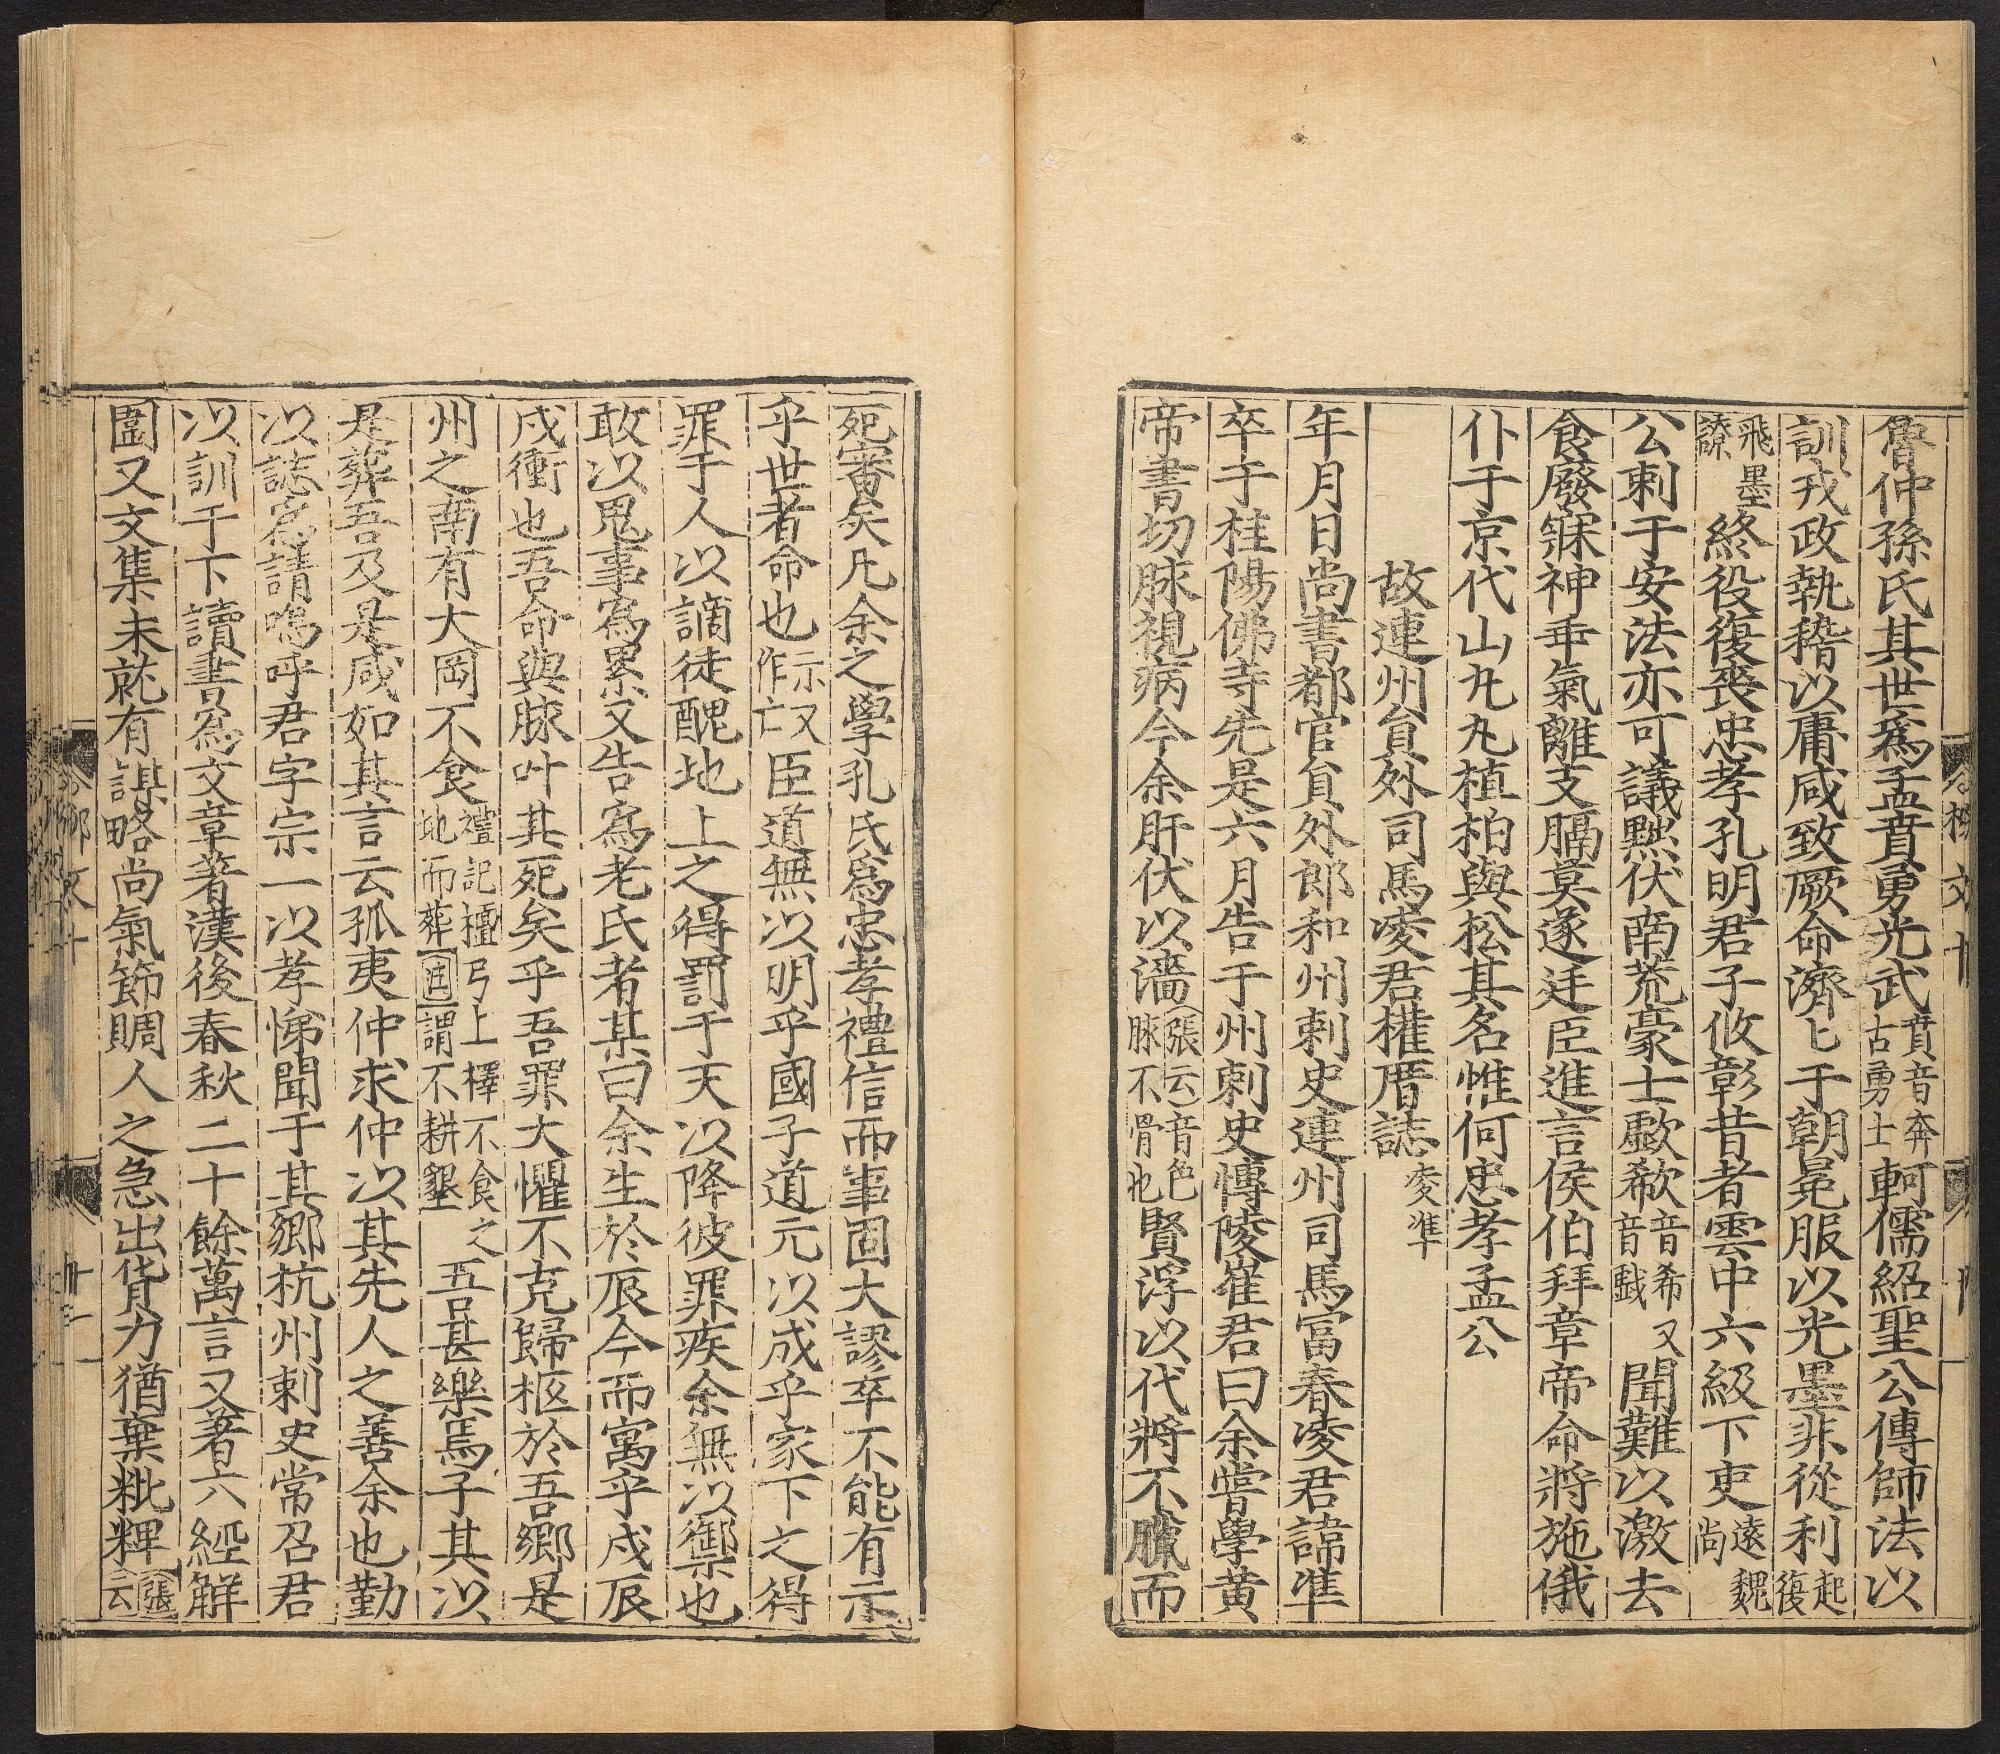 魯仲孫氏其世爲孟賁勇光武賁音奔古勇士軻儒紹聖公傳師法以
訓戎政執稽以庸咸致厥命濟匕于朝冕服以光墨非從利起復
飛墨縗終役復喪忠孝孔明君子攸彰昔者雲中六級下吏遠魏尚
公刺于安法亦可議黙伏南荒豪士歔欷音希又音戲聞難以激去
食廢寐神乖氣離支膈莫遂廷臣進言侯伯拜章帝命將施俄
仆于京代山丸丸植柏與松其名惟何忠孝孟公
故連州負外司馬凌君權厝誌凌準
年月日尚書都官負外郎和州刺史連州司馬富春凌君諱準
卒于桂陽佛寺先是六月告于州刺史博陵崔君曰余嘗學黄
帝書切脉視病今余肝伏以濇張云音色脉不骨也腎浮以代將不臘而
死審矣凡余之學孔氏爲忠孝禮信而事固大謬卒不能有示
乎世者命也示又作亡臣道無以明乎國子道元以成乎家下之得
罪于人以謫徙醜地上之得罰于天以降彼罪疾余無以禦也
敢以鬼事爲累又告爲老氏者某曰余生於辰今而寓乎戌辰
戌衝也吾命與脉叶其死矣乎吾罪大懼不克歸柩於吾鄉是
州之南有大岡不食禮記檀弓上擇不食之地而葬注謂不耕墾吾甚樂焉子其以
是葬吾及是咸如其言云孤夷仲求仲以其先人之善余也勤
以誌爲請嗚呼君字宗一以孝悌聞于其鄉杭州刺史常召君
以訓于下讀書爲文章著漢後春秋二十餘萬言又著六經解
圍又文集未就有謀略尚氣節賙人之急出貨力猶棄粃粺張云